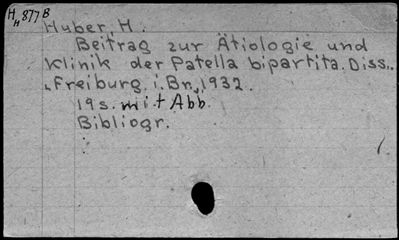 H H 877 B
Huber, H.
Beitrag zur Ätiologie und
Klinik der Patella bipartita. Diss.
Freiburg i. Br., 1932.
19 s. mit Abb.
Bibliogr.